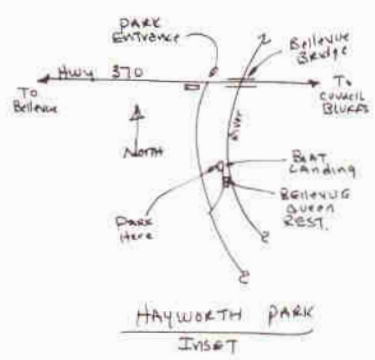 PARK
Entrance
Bellevue
Bridge
Hwy 370
To
Bellevue
To
Council
Bluffs
North
River
Boat
Landing
Park
Here
Bellevue
Queen
REST.
HAYWORTH PARK
INSET